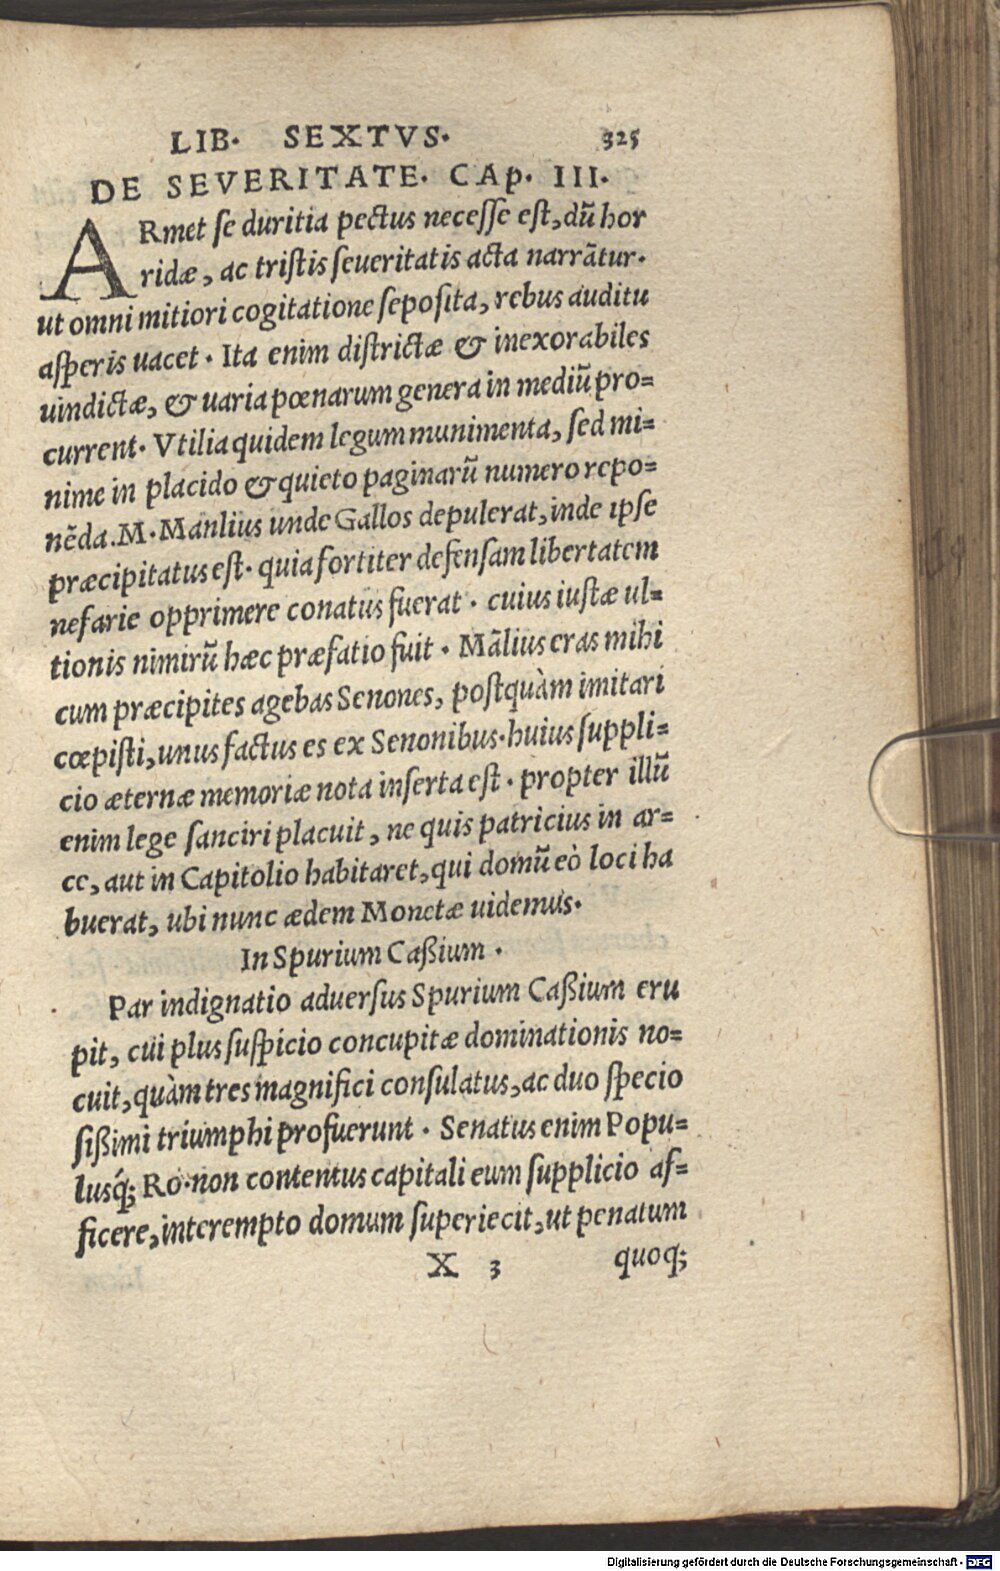 LIB. SEXTVS. 325
DE SEVERITATE. CAP. III.
ARmet se duritia pectus necesse est, dũ hor
ridæ, ac tristis seueritatis acta narrãtur.
ut omni mitiori cogitatione seposita, rebus auditu
asperis uacet. Ita enim districtæ & inexorabiles
uindictæ, & uaria pœnarum genera in mediũ pro=
current. Vtilia quidem legum munimenta, sed mi=
nime in placido & quieto paginarũ numero repo=
nẽda. M. Manlius unde Gallos depulerat, inde ipse
præcipitatus est. quia fortiter defensam libertatem
nefarie opprimere conatus fuerat. cuius iustæ ul=
tionis nimirũ hæc præfatio fuit. Mãlius eras mihi
cum præcipites agebas Senones, postquàm imitari
cœpisti, unus factus es ex Senonibus. huius suppli=
cio æternæ memoriæ nota inserta est. propter illũ
enim lege sanciri placuit, ne quis patricius in ar=
ce, aut in Capitolio habitaret, qui domũ eò loci ha
buerat, ubi nunc ædem Monetæ uidemus.
In Spurium Caßium.
Par indignatio aduersus Spurium Caßium eru
pit, cui plus suspicio concupitæ dominationis no=
cuit, quàm tres magnifici consulatus, ac duo specio
sißimi triumphi profuerunt. Senatus enim Popu=
lusq́; Ro. non contentus capitali eum supplicio af=
ficere, interempto domum superiecit, ut penatum
X 3 quoq;
Digitalisierung gefördert durch die Deutsche Forschungsgemeinschaft - DFG